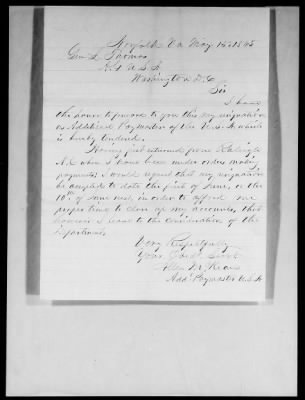 Norfolk Va May 15. 1865
Gen L Thomas
A. G. U.S.A.
Washington D.C
Sir
I have
the honor to forward to you this my resignation
as Additional Paymaster of the U.S.A. which
is hereby tendered.
Having just returned from Raleigh
N.C. where I have been under orders making
payments I would request that my resignation
be accepted to date the first of June, or the
10th of same next, in order to afford me
proper time to close up my accounts, that
however I leave to the consideration of the
Department.
Very Respectfully
Your Obdt. Servt
Add' Paymaster U.S.A